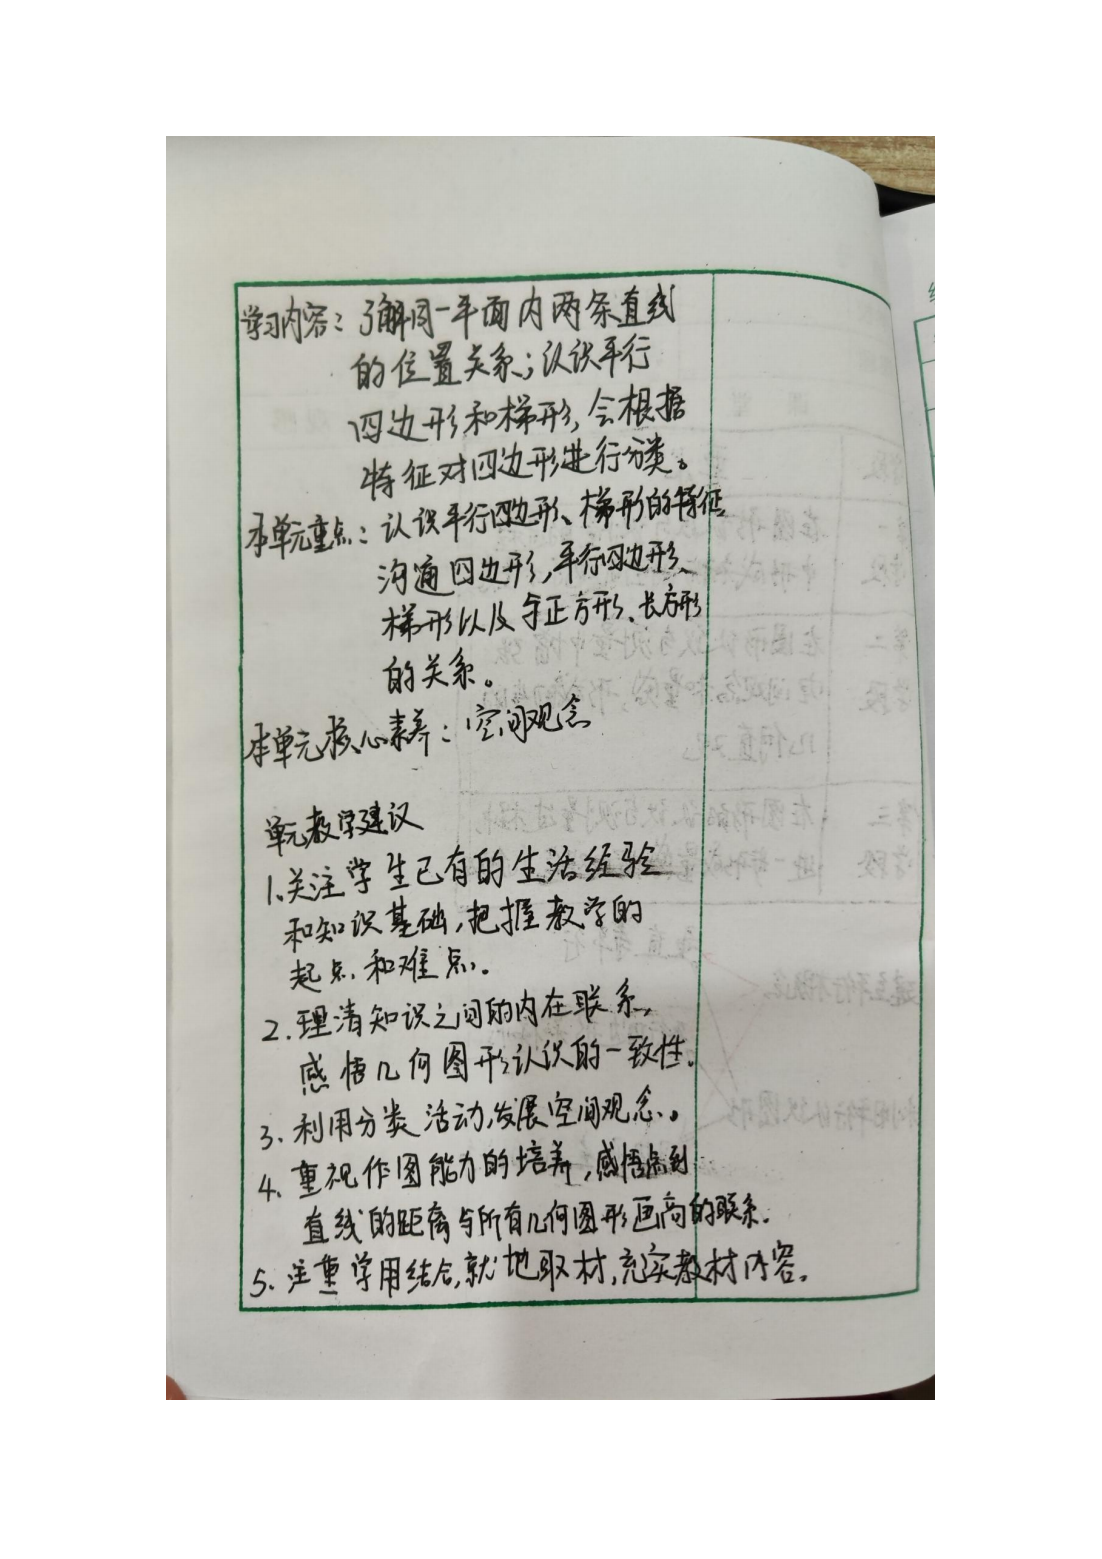 学习内容：了解同一平面内两条直线
的位置关系；认识平行
四边形和梯形，会根据
特征对四边形进行分类。
本单元重点：认识平行四边形、梯形的特征
沟通四边形，平行四边形、
梯形以及与正方形、长方形
的关系。
本单元核心素养：空间观念
单元教学建议
1、关注学生已有的生活经验
和知识基础，把握教学的
起点和难点。
2.理清知识之间的内在联系，
感悟几何图形认识的一致性。
3、利用分类活动，发展空间观念。
4、重视作图能力的培养，感悟点到
直线的距离与所有几何图形画高的联系。
5、注重学用结合，就地取材，充实教材内容。